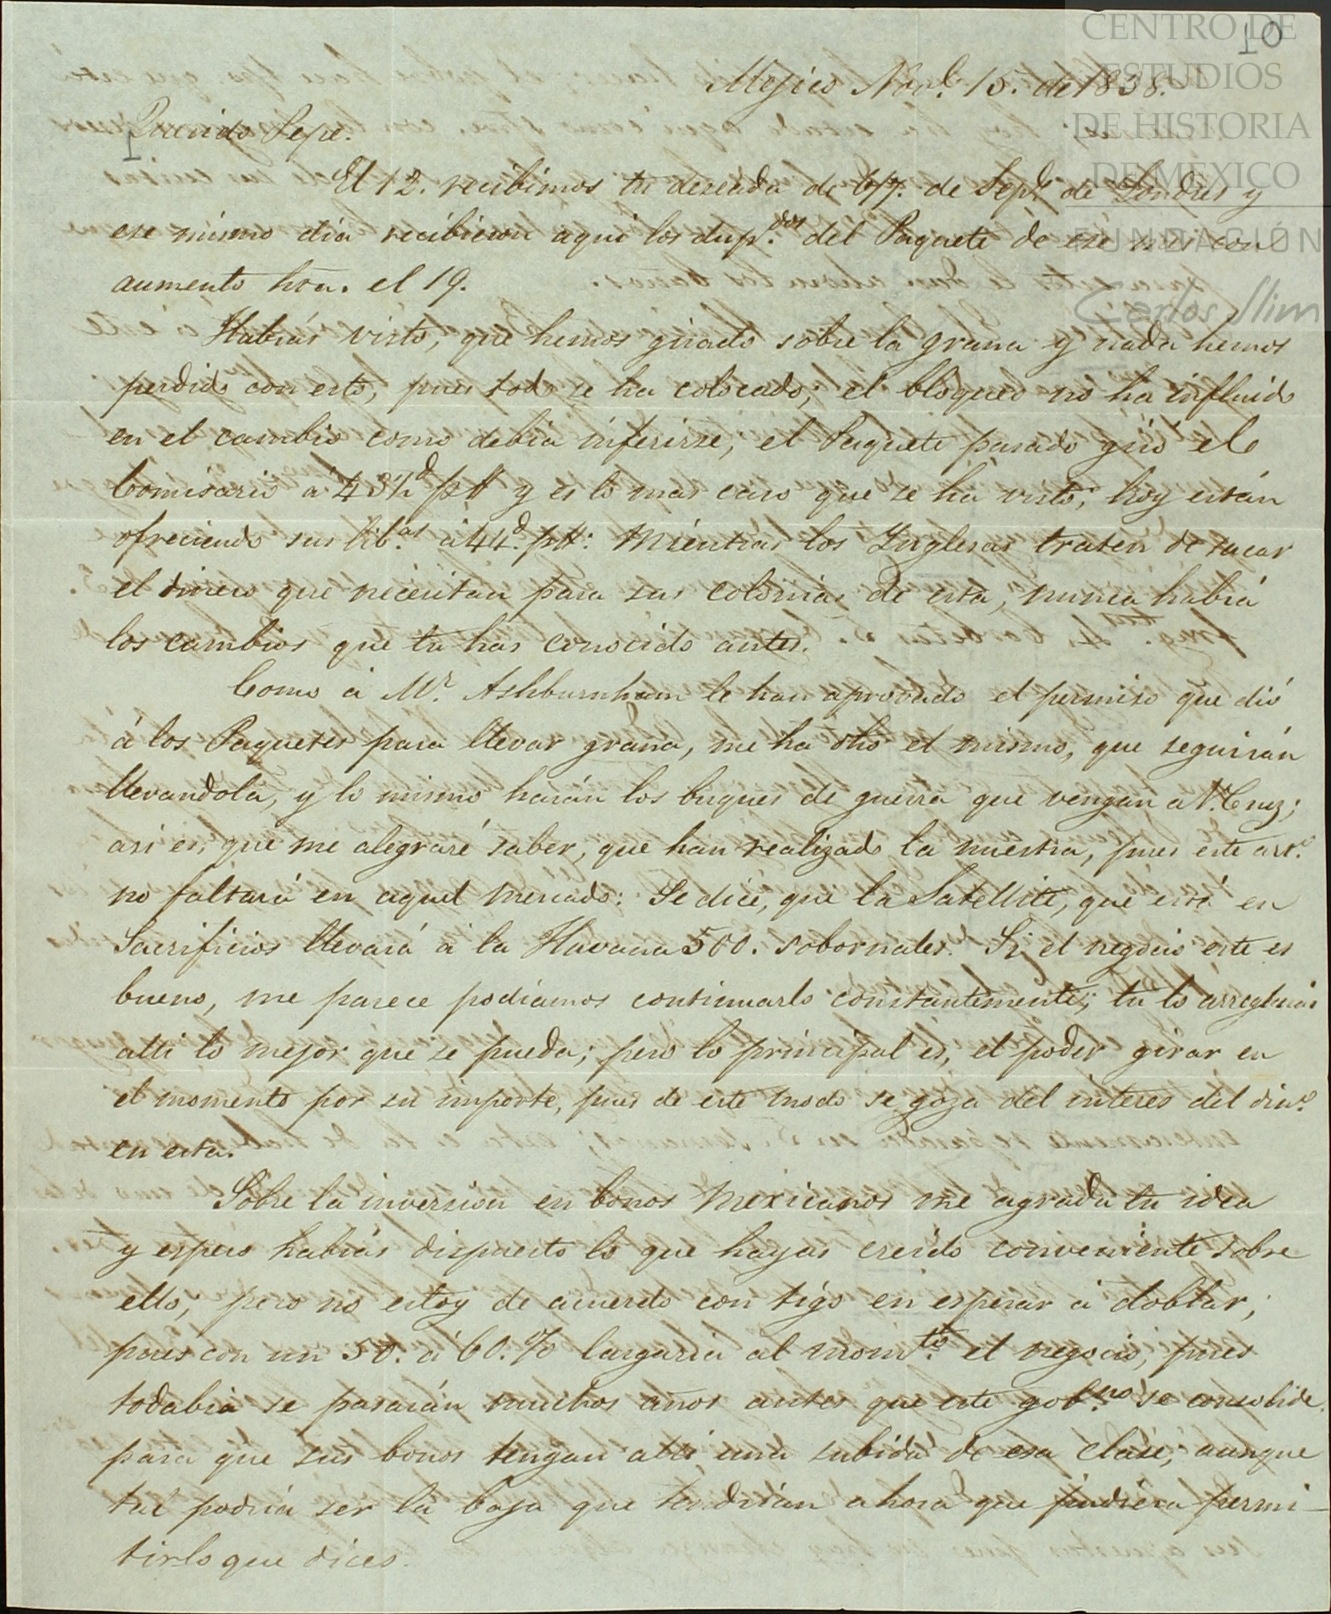 CENTRO DE
ESTUDIOS
DE HISTORIA
DE MÉXICO
FUNDACIÓN
Carlos Slim
10
Mejico Nov.e 15. de 1838.
1
Querido Pepe.
El 12. recibimos tu deseada de 6/7. de Sept.e de Londres y
ese mismo dia recibieron aqui los dup.dos del Paquete de ese mes con
aumento hta. el 19.
Habrás visto, que hemos girado sobre la grana y nada hemos
perdido con esto, pues todo se ha colocado; el bloqueo no ha influido
en el cambio como debia inferirse; el Paquete pasado giró el
Comisario á 43½d p$ y es lo mas caro que se há visto; hoy están
ofreciendo sus lib.as á 44.d p$: Miéntras los Ingleses traten de sacar
el dinero que necesitan para sus colonias de esta, nunca habrá
los cambios que tu has conocido antes.
Como á Mr. Ashburnham le han aprovado el permiso que dió
á los Paquetes para llevar grana, me ha dho el mismo, que seguirán
llevandola, y lo mismo harán los buques de guerra que vengan a V. Cruz;
asi es, que me alegraré saber, que han realizado la nuestra, pues este art.o
no faltará en aquel mercado: Se dice, que la Satellite, que está en
Sacrificios llevará á la Havana 500. sobornales. Si el negocio este es
bueno, me parece podiamos continuarlo constantemente; tu lo arreglarás
alli lo mejor que se pueda; pero lo principal es, el poder girar en
el momento por su importe, pues de este modo se goza del interes del din.o
en esta.
Sobre la inversion en bonos Mexicanos me agrada tu idea
y espero habrás dispuesto lo que hayas creido conveniente sobre
ello; pero no estoy de acuerdo con tigo en esperar á doblar;
pues con un 50. á 60.% largaria al mom.to el negocio, pues
todabia se pasarán muchos años antes que este gob.no se consolide
para que sus bonos tengan alli una subida de esa clase; aunque
tal podria ser la baja que tendrian ahora que pudiera permi-
tirlo que dices.